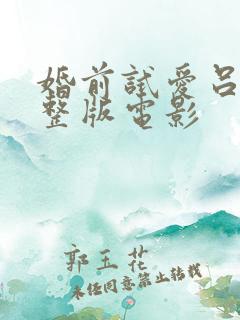 婚前試愛呂
整版電影
郭玉花
未经同意禁止转载